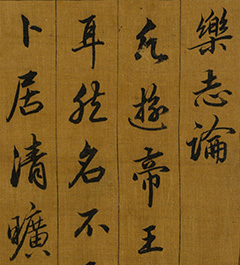 樂志論
凡遊帝王
耳然名不
卜居清曠